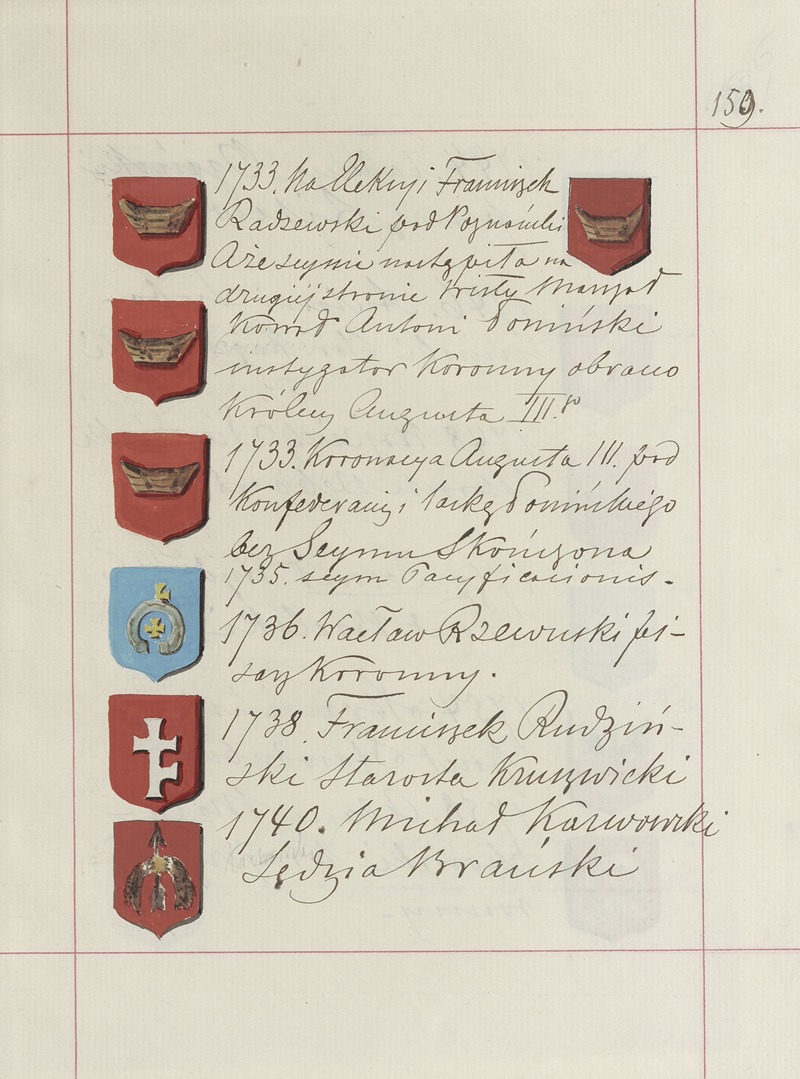 159.
1733. Na Elekcyi Franciszek
Radzewski pod Poznański
Aże seymie nastąpiła na
drugiéj stronie Wisły
Antoni Poniński
instygator Koronny obrano
Królem Augusta III.go
1733. Koronacya Augusta III. pod
Konfederacyi laską Ponińskiego
bez Seymu Skończona
1735. seym Pacyficacionis.
1736. Wacław Rzewuski pi-
sarz Koronny.
1738. Franciszek Rudziń-
ski Starosta Kruszwicki
1740. Michał Karwowski
Sędzia Brański